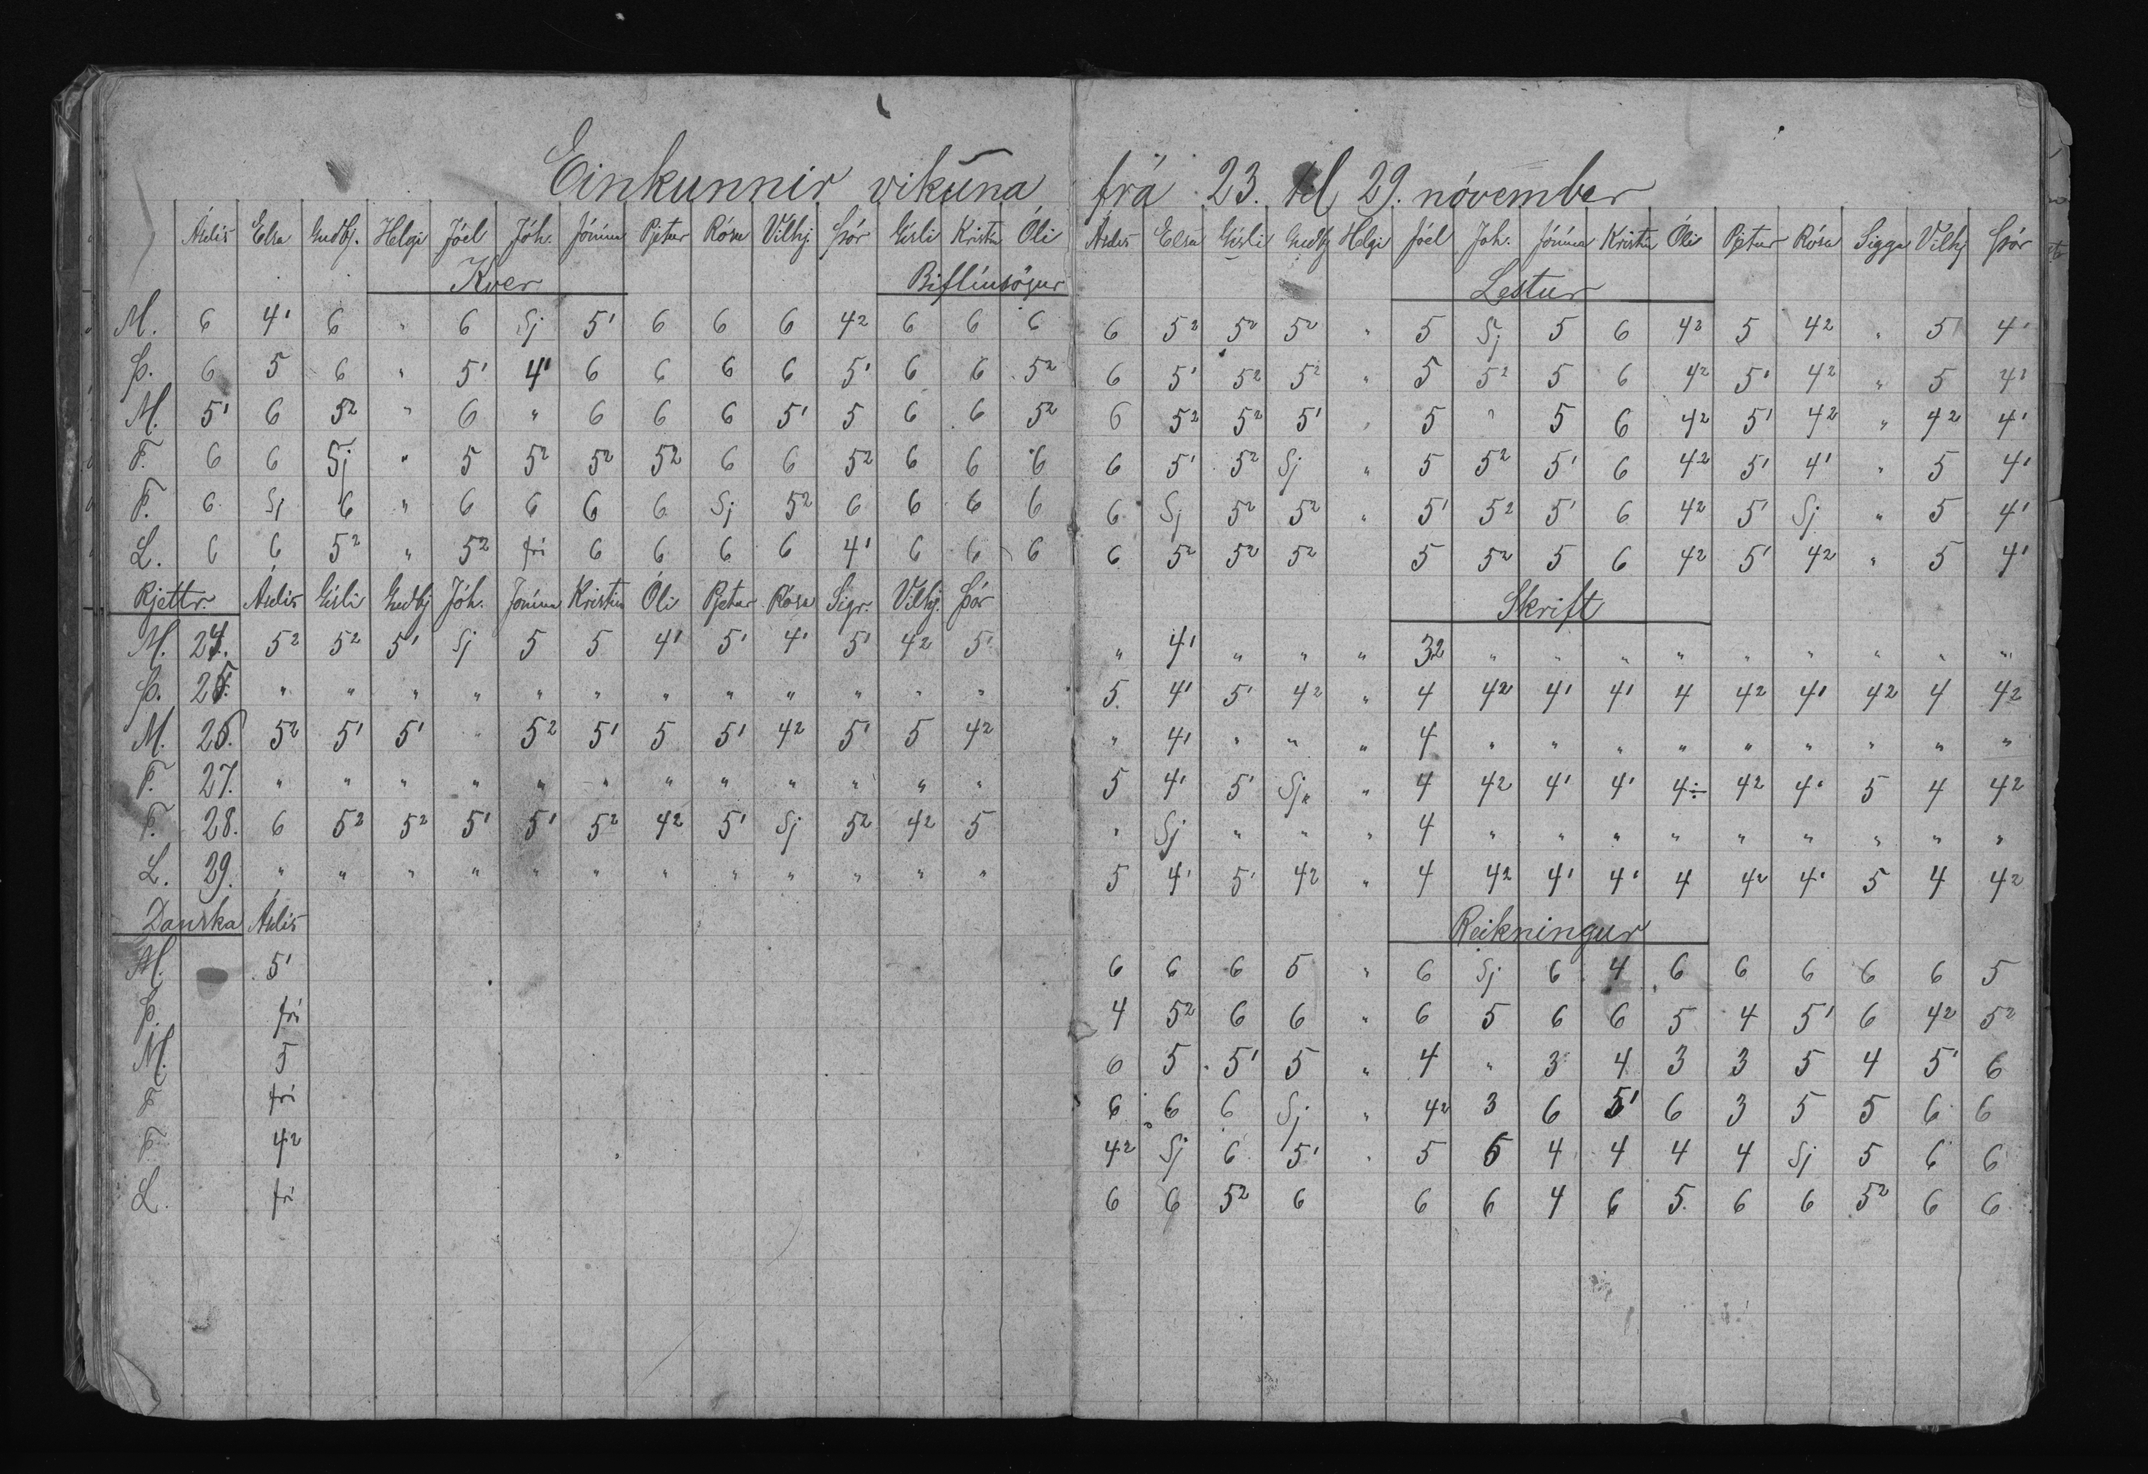 Einkunnir vikuna
Áslis Elsa Guðbj. Helgi Jóel Jóh. Jónína Pjetur Rósa Vilhj. Þór Gísli Kristín Óli
Kver Biflíusögur
M. 6 4¹ 6 " 6 Sj 5¹ 6 6 6 4² 6 6 6
Þ. 6 5 6 " 5¹ 4¹ 6 6 6 6 5¹ 6 6 5²
M. 5¹ 6 5² " 6 " 6 6 6 5¹ 5 6 6 5²
F. 6 6 Sj " 5 5² 5² 5² 6 6 5² 6 6 6
F. 6 Sj 6 " 6 6 6 6 Sj 5² 6 6 6 6
L. 6 6 5² " 5² frí 6 6 6 6 4¹ 6 6 6
Rjettr. Áslis Gísli Guðbj Jóh. Jónína Kristín Óli Pjetur Rósa Sigr. Vilhj. Þór
M. 24. 5² 5² 5¹ Sj 5 5 4¹ 5¹ 4¹ 5¹ 4² 5¹
Þ. 25. " " " " " " " " " " " "
M. 26. 5² 5¹ 5¹ " 5² 5¹ 5 5¹ 4² 5¹ 5 4²
F. 27. " " " " " " " " " " " "
F. 28. 6 5² 5² 5¹ 5¹ 5² 4² 5¹ Sj 5² 4² 5
L. 29. " " " " " " " " " " " "
Danska Áslis
M. 5¹
Þ. frí
M. 5
F frí
F. 4²
L. frí
frá 23. til 29. nóvember
Áslis Elsa Gísli Guðbj Helgi Jóel Joh. Jónína Kristín Óli Pjetur Rósa Sigga Vilhj Þór
Lestur
6 5² 5² 5² " 5 Sj 5 6 4² 5 4² " 5¹ 4¹
6 5¹ 5² 5² " 5 5² 5 6 4² 5¹ 4² " 5 4¹
6 5² 5² 5¹ " 5 " 5 6 4² 5¹ 4² " 4² 4¹
6 5¹ 5² Sj " 5 5² 5¹ 6 4² 5¹ 4¹ " 5 4¹
6 Sj 5² 5² " 5¹ 5² 5¹ 6 4² 5¹ Sj " 5 4¹
6 5² 5² 5² 5 5² 5 6 4² 5¹ 4² " 5 4¹
Skrift
" 4¹ " " " 3² " " " " " " " " "
5. 4¹ 5¹ 4² " 4 4² 4¹ 4¹ 4 4² 4¹ 4² 4 4²
" 4¹ " " " 4 " " " " " " " " "
5 4¹ 5¹ Sj " " 4 4² 4¹ 4¹ 4÷ 4² 4¹ 5 4 4²
" Sj " " " 4 " " " " " " " " "
5 4¹ 5¹ 4² " 4 4² 4¹ 4¹ 4 4² 4¹ 5 4 4²
Reikningur
6 6 6 5 " 6 Sj 6 4 6 6 6 6 6 5
4 5² 6 6 " 6 5 6 6 5 4 5¹ 6 4² 5²
6 5 5¹ 5 " 4 " 3 4 3 3 5 4 5¹ 6
6 6 6 Sj " 4² 3 6 5¹ 6 3 5 5 6 6
4² Sj 6 5¹ " 5 6 4 4 4 4 Sj 5 6 6
6 6 5² 6 6 6 4 6 5 6 6 5² 6 6